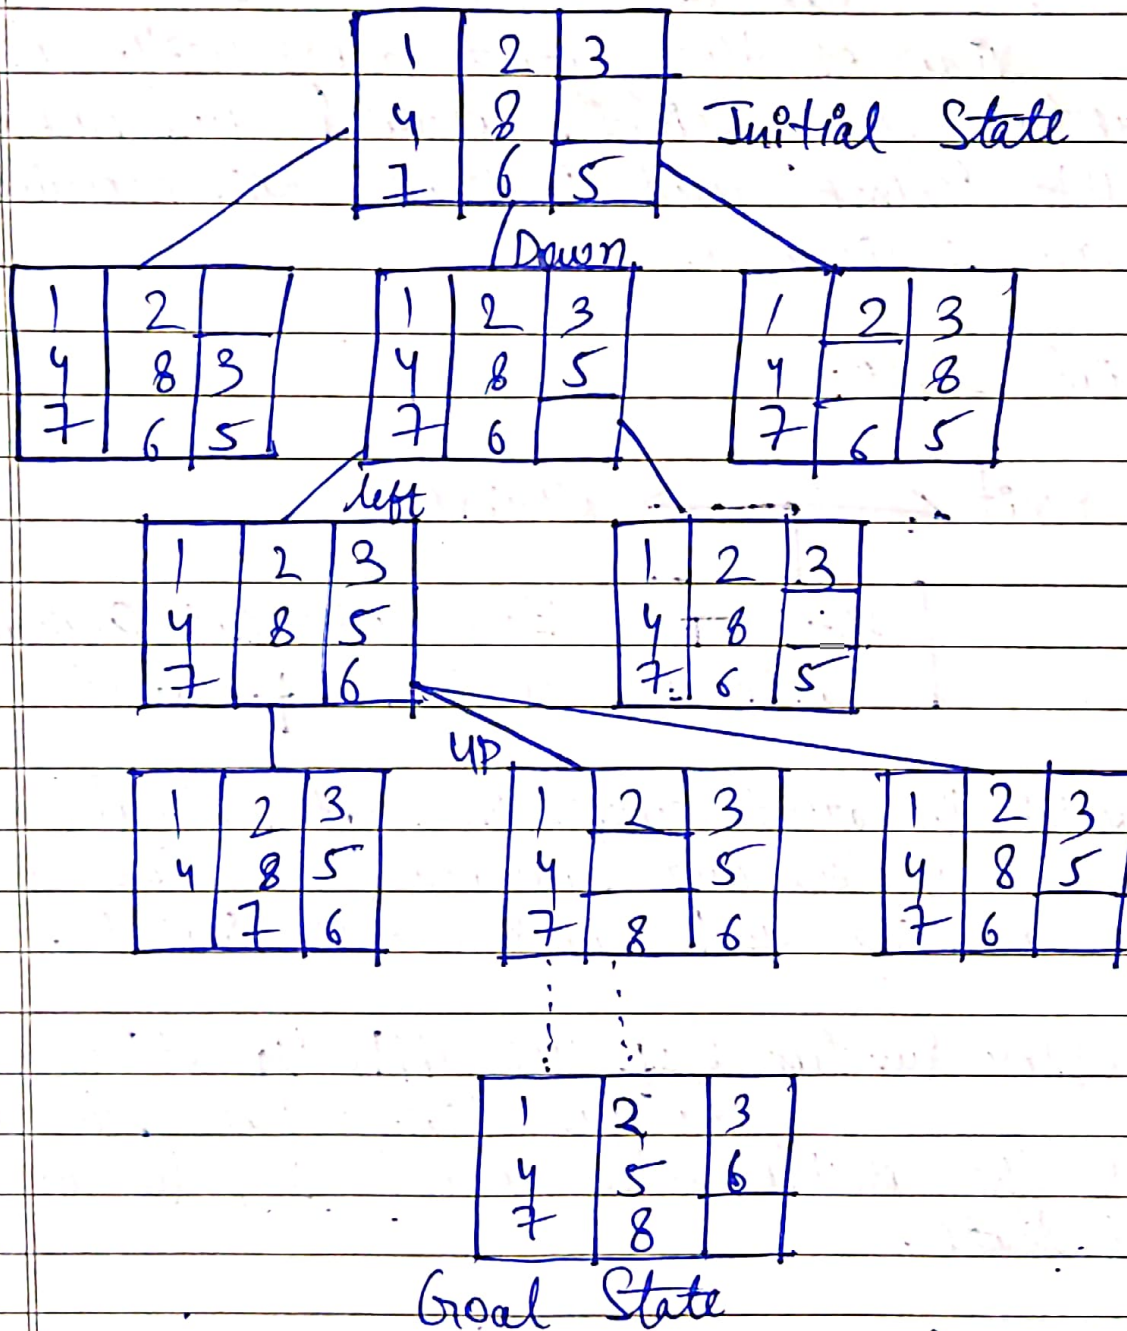 1 2 3
4 8
Initial State
7 6 5
Down
1 2
4 8 3
7 6 5
1 2 3
4 8 5
7 6
1 2 3
4 8
7 6 5
left
1 2 3
4 8 5
7 6
1 2 3
4 8
7 6 5
UP
1 2 3
4 8 5
7 6
1 2 3
4 5
7 8 6
1 2 3
4 8 5
7 6
1 2 3
4 5 6
7 8
Goal State